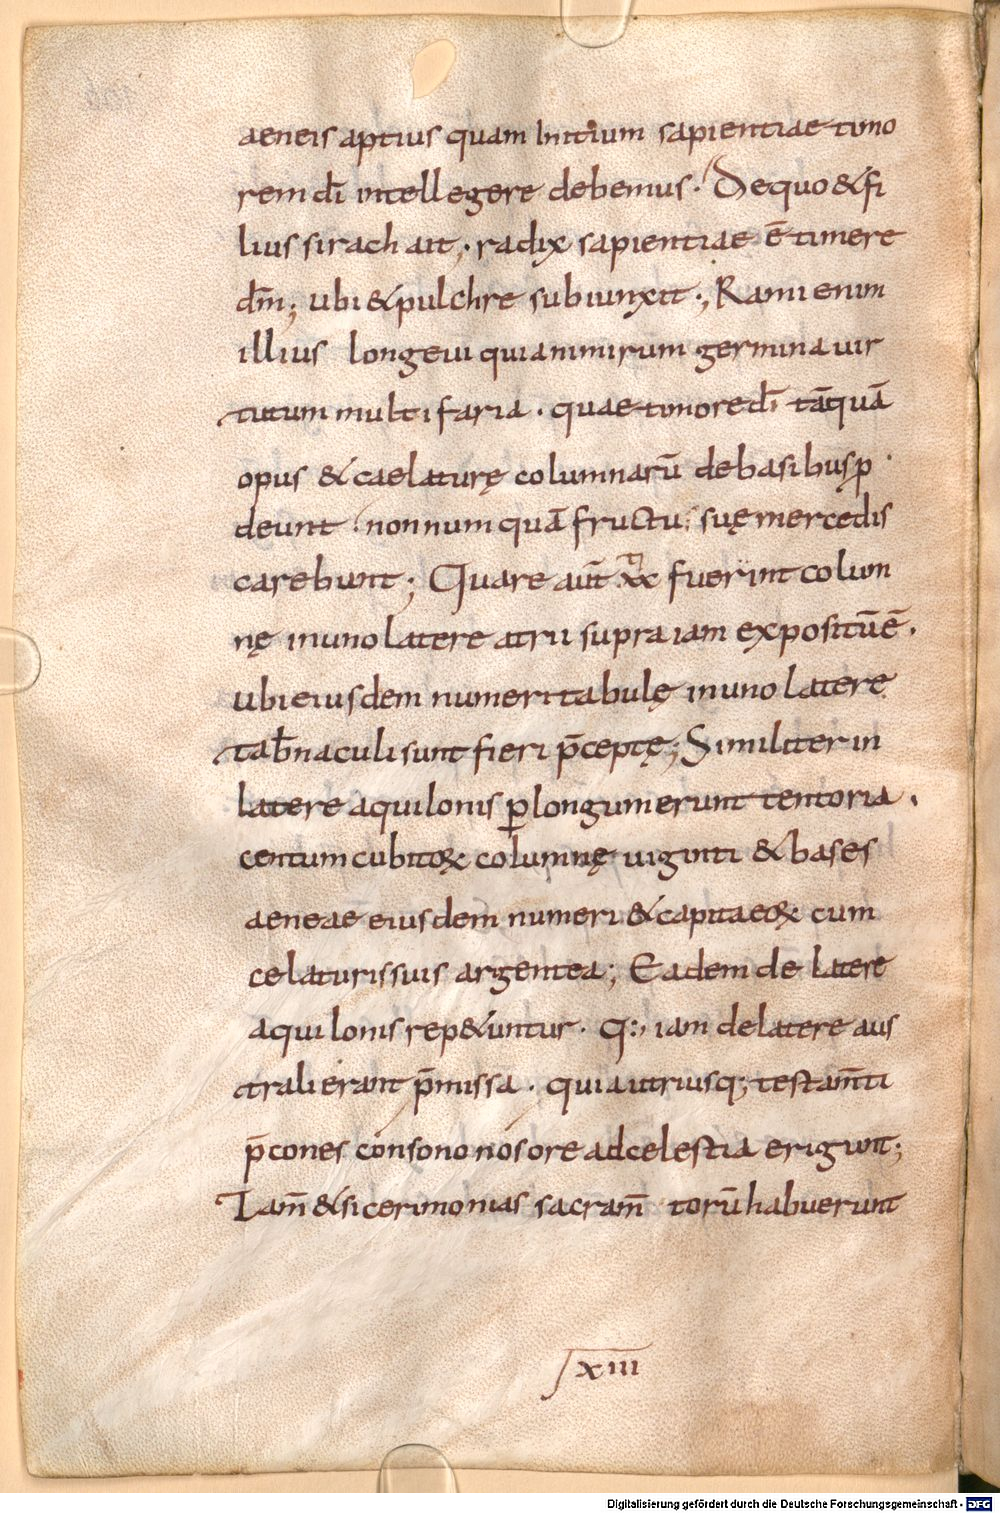 aeneis aptius quam Initium sapientiae timo
rem dī intellegere debemus. De quo & fi
lius sirach ait; radix sapientiae ē timere
dm̄; ubi & pulchre subiunxit; Rami enim
illius longeui quia nimirum germina uir
tutum multifaria. quae timore dī tāquā
opus & caelaturę columnarū de basibus p
deunt. non numquā fructu suę mercedis
carebunt; Quare aut̄ xx fuerint colum
nę in uno latere atrii supra iam expositū ē.
ubi eiusdem numeri tabulę in uno latere
tab̄naculi sunt fieri p̄ceptę; Similiter in
latere aquilonis ꝑ longum erunt tentoria.
centum cubitoꝝ columnę uiginti & bases
aeneae eiusdem numeri & capita eoꝝ cum
celaturis suis argentea; Eadem de latere
aquilonis rep&untur. q:, iam de latere aus
trali erant p̄missa. quia utriusq; testam̄ti
p̄cones consono nos ore ad celestia erigunt;
Tam̄ & si cerimonias sacram̄ torū habuerunt
xiii
Digitalisierung gefördert durch die Deutsche Forschungsgemeinschaft - DFG